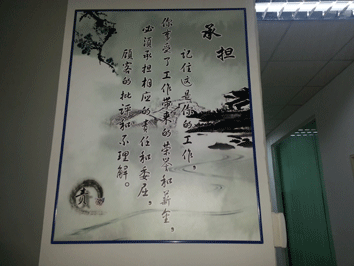 承担
记住这是你的工作,
你享受了工作带来的荣誉和薪金,
必须承担相应的责任和委屈,
顾客的批评和不理解。